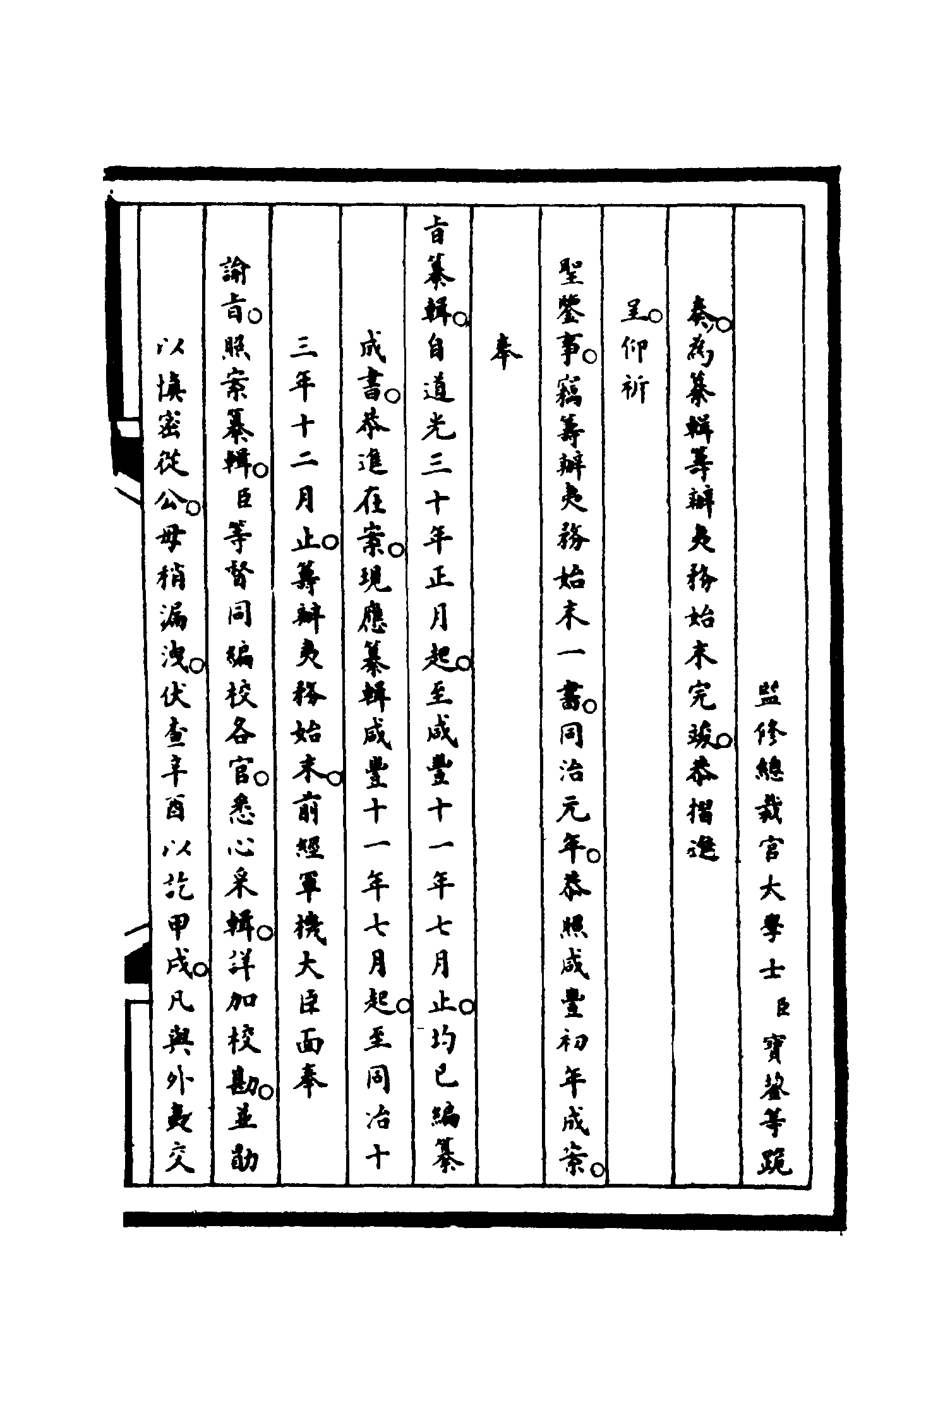 監修總裁官大學士臣寶鋆等跪
奏。為纂輯籌辦夷務始末完竣。恭摺進
呈。仰祈
聖鑒事。竊籌辦夷務始末一書。同治元年。恭照咸豐初年成案。
奉
旨纂輯。自道光三十年正月起。至咸豐十一年七月止。均已編纂
成書。恭進在案。現應纂輯咸豐十一年七月起。至同治十
三年十二月止。籌辦夷務始末。前經軍機大臣面奉
諭旨。照案纂輯。臣等督同編校各官。悉心采輯。詳加校勘。並勖
以慎密從公。毋稍漏洩。伏查辛酉以訖甲戌。凡與外夷交